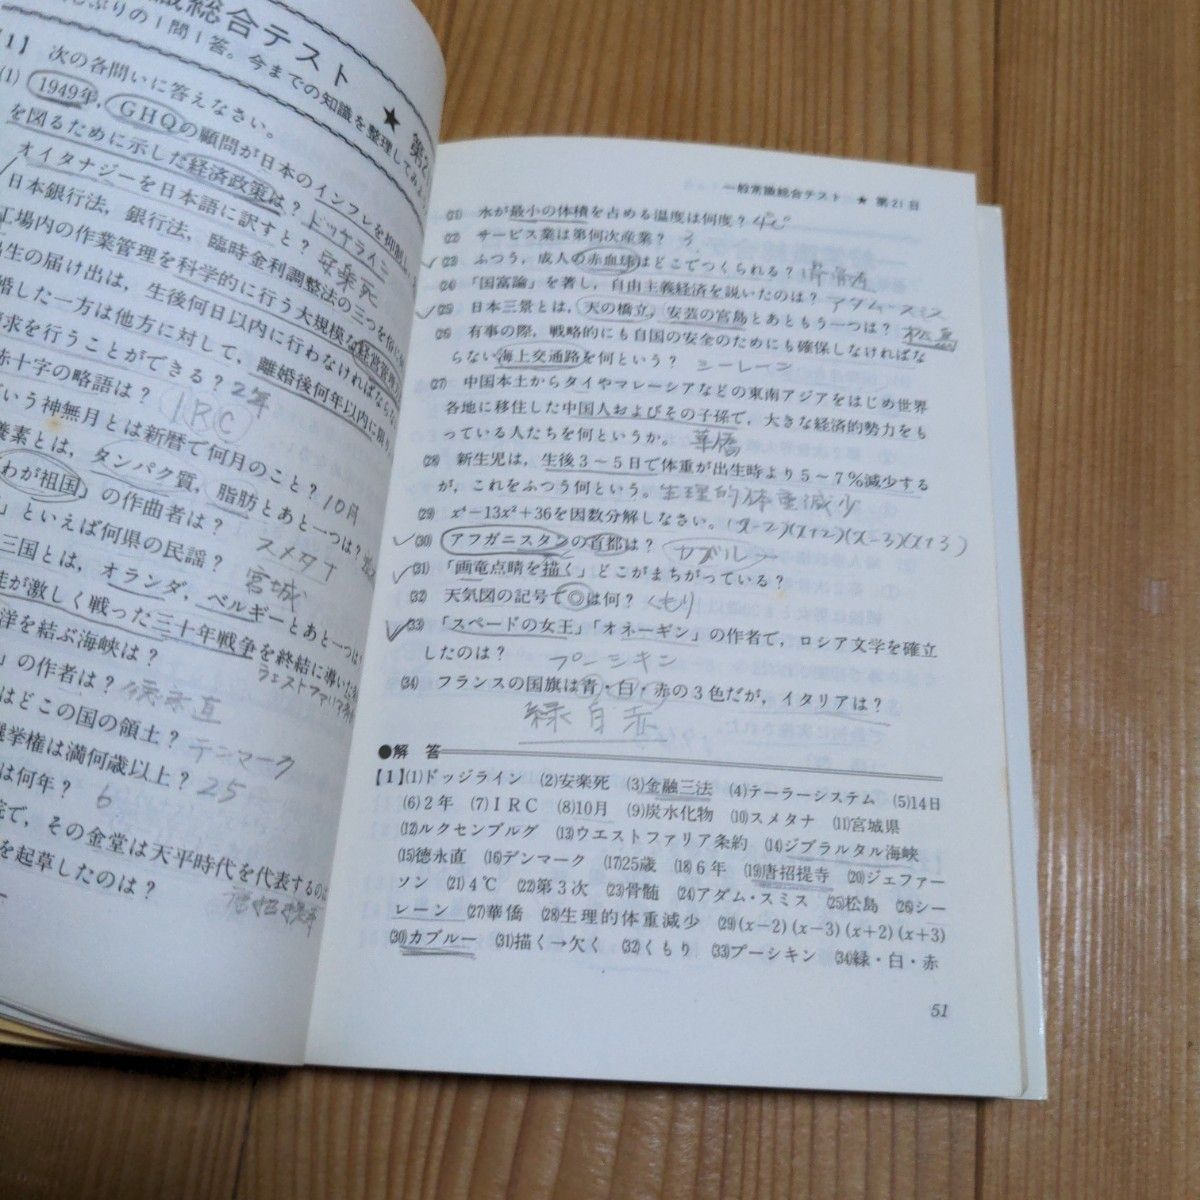 識総合テスト ★ 第2
ぷりの1問1答。今までの知識を整理してみよ
【1】 次の各問いに答えなさい。
(1) 1949年, GHQの顧問が日本のインフレを抑制し
を図るために示した経済政策は? ドッヂライン
オイタナジーを日本語に訳すと? 安楽死
日本銀行法, 銀行法, 臨時金利調整法の三つを
工場内の作業管理を科学的に行う大規模な経営管理
出生の届け出は, 生後何日以内に行わなければならな
婚した一方は他方に対して, 離婚後何年以内に限り
請求を行うことができる? 2年
赤十字の略語は? IRC
いう神無月とは新暦で何月のこと? 10月
養素とは, タンパク質, 脂肪とあと一つは?
わが祖国」の作曲者は? スメタナ
」といえば何県の民謡? 宮城
三国とは, オランダ, ベルギーとあと一つは?
徒が激しく戦った三十年戦争を終結に導いた
洋を結ぶ海峡は? ウェストファリア条約
」の作者は? 徳永直
はどこの国の領土? デンマーク
選挙権は満何歳以上? 25
は何年? 6
院で, その金堂は天平時代を代表するのは
を起草したのは? 唐招提寺
一般常識総合テスト ★ 第21日
(21) 水が最小の体積を占める温度は何度? 4℃
(22) サービス業は第何次産業? 3
(23) ふつう, 成人の赤血球はどこでつくられる? 骨髄
(24) 「国富論」を著し, 自由主義経済を説いたのは? アダム・スミス
(25) 日本三景とは, 天の橋立, 安芸の宮島とあともう一つは? 松島
(26) 有事の際, 戦略的にも自国の安全のためにも確保しなければな
らない海上交通路を何という? シーレーン
(27) 中国本土からタイやマレーシアなどの東南アジアをはじめ世界
各地に移住した中国人およびその子孫で, 大きな経済的勢力をも
っている人たちを何というか。 華僑
(28) 新生児は, 生後3～5日で体重が出生時より5～7%減少する
が, これをふつう何という。 生理的体重減少
(29) x⁴−13x²+36を因数分解しなさい。 (x-2)(x+2)(x-3)(x+3)
(30) アフガニスタンの首都は? カブール
(31) 「画竜点晴を描く」どこがまちがっている?
(32) 天気図の記号で◎は何? くもり
(33) 「スペードの女王」「オネーギン」の作者で, ロシア文学を確立
したのは? プーシキン
(34) フランスの国旗は青・白・赤の3色だが, イタリアは?
緑 白 赤
●解 答
【1】(1)ドッジライン (2)安楽死 (3)金融三法 (4)テーラーシステム (5)14日
(6)2年 (7)IRC (8)10月 (9)炭水化物 (10)スメタナ (11)宮城県
(12)ルクセンブルグ (13)ウエストファリア条約 (14)ジブラルタル海峡
(15)徳永直 (16)デンマーク (17)25歳 (18)6年 (19)唐招提寺 (20)ジェファー
ソン (21)4℃ (22)第3次 (23)骨髄 (24)アダム・スミス (25)松島 (26)シー
レーン (27)華僑 (28)生理的体重減少 (29)(x−2)(x−3)(x+2)(x+3)
(30)カブルー (31)描く→欠く (32)くもり (33)プーシキン (34)緑・白・赤
51